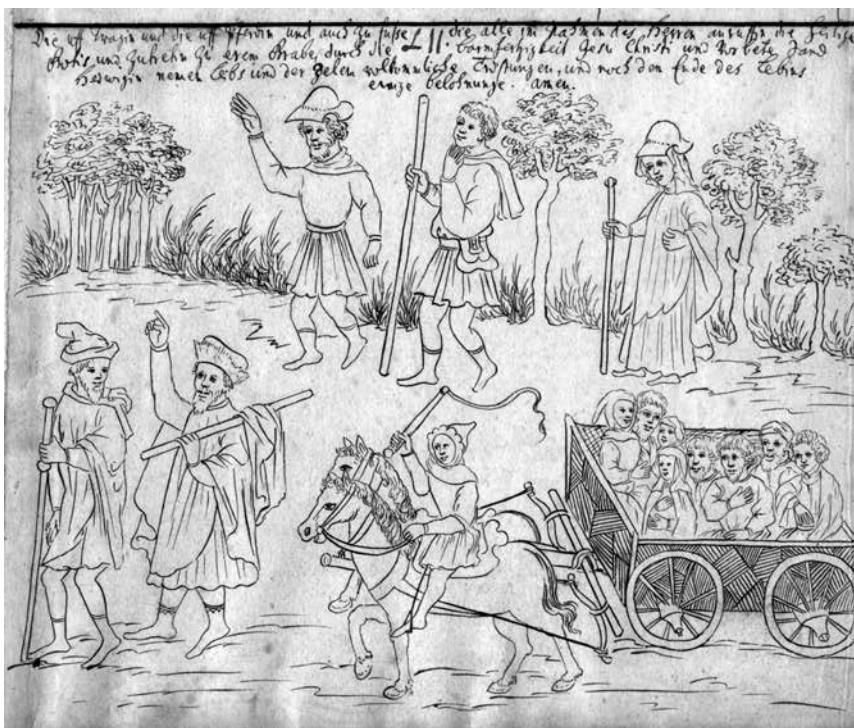 Die uf wagin und die uf Pferdin und auch zu fusse die alle im Nahmen des Herren anruffin die heilige
und zu erem Grabe, durch die LII. barmherzigkeit Jesu Christi und Vorbete Sand
Hedwigin nemen Lebs und der Zelen volkommliche Trostungen, und noch dem Ende des Lebins
ewige belohnunge. amen.